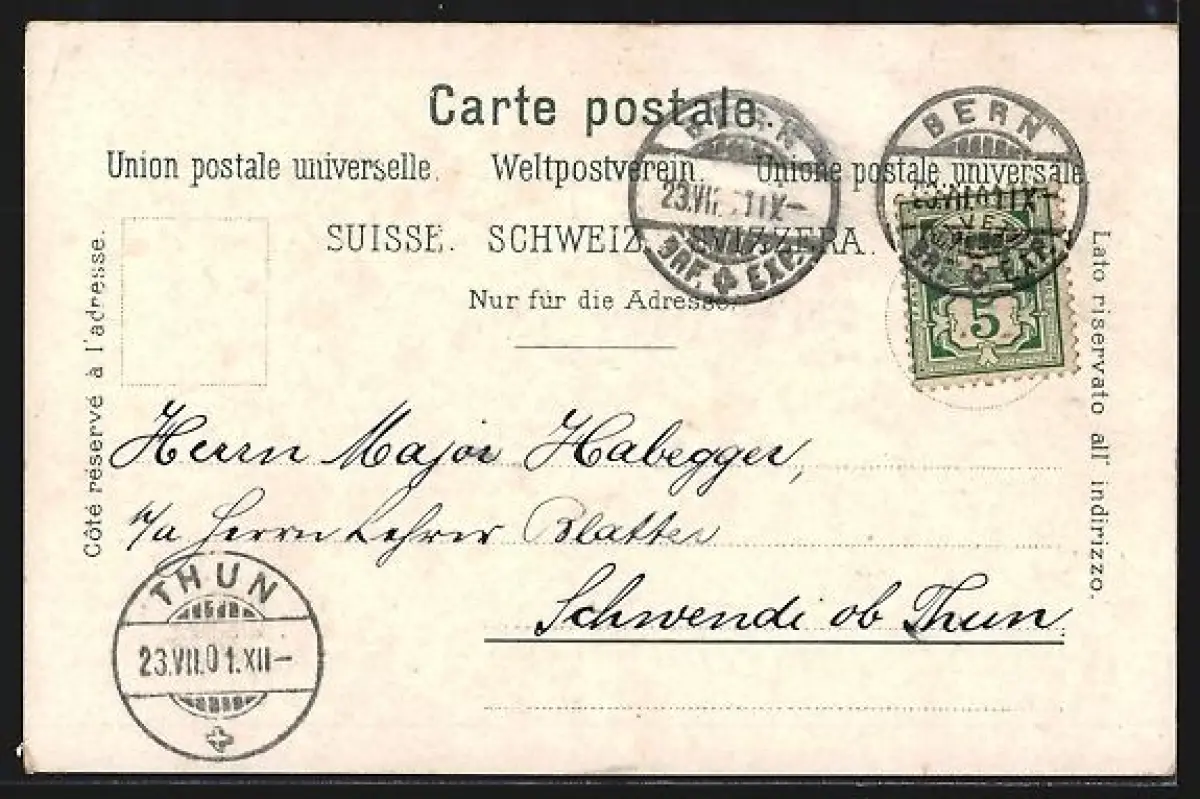 Carte postale.
Union postale universelle. Weltpostverein. Unione postale universale
SUISSE. SCHWEIZ. SVIZZERA.
Nur für die Adresse.
Côté réservé à l'adresse.
Lato riservato all' indirizzo.
BERN
23.VII. 1 IX-
BRF. EXP.
BERN
23.VII.01 IX-
BRF. EXP.
5
Herrn Major Habegger,
p/a Herrn Lehrer Blatter
Schwendi ob Thun
THUN
23.VII.01.XII-